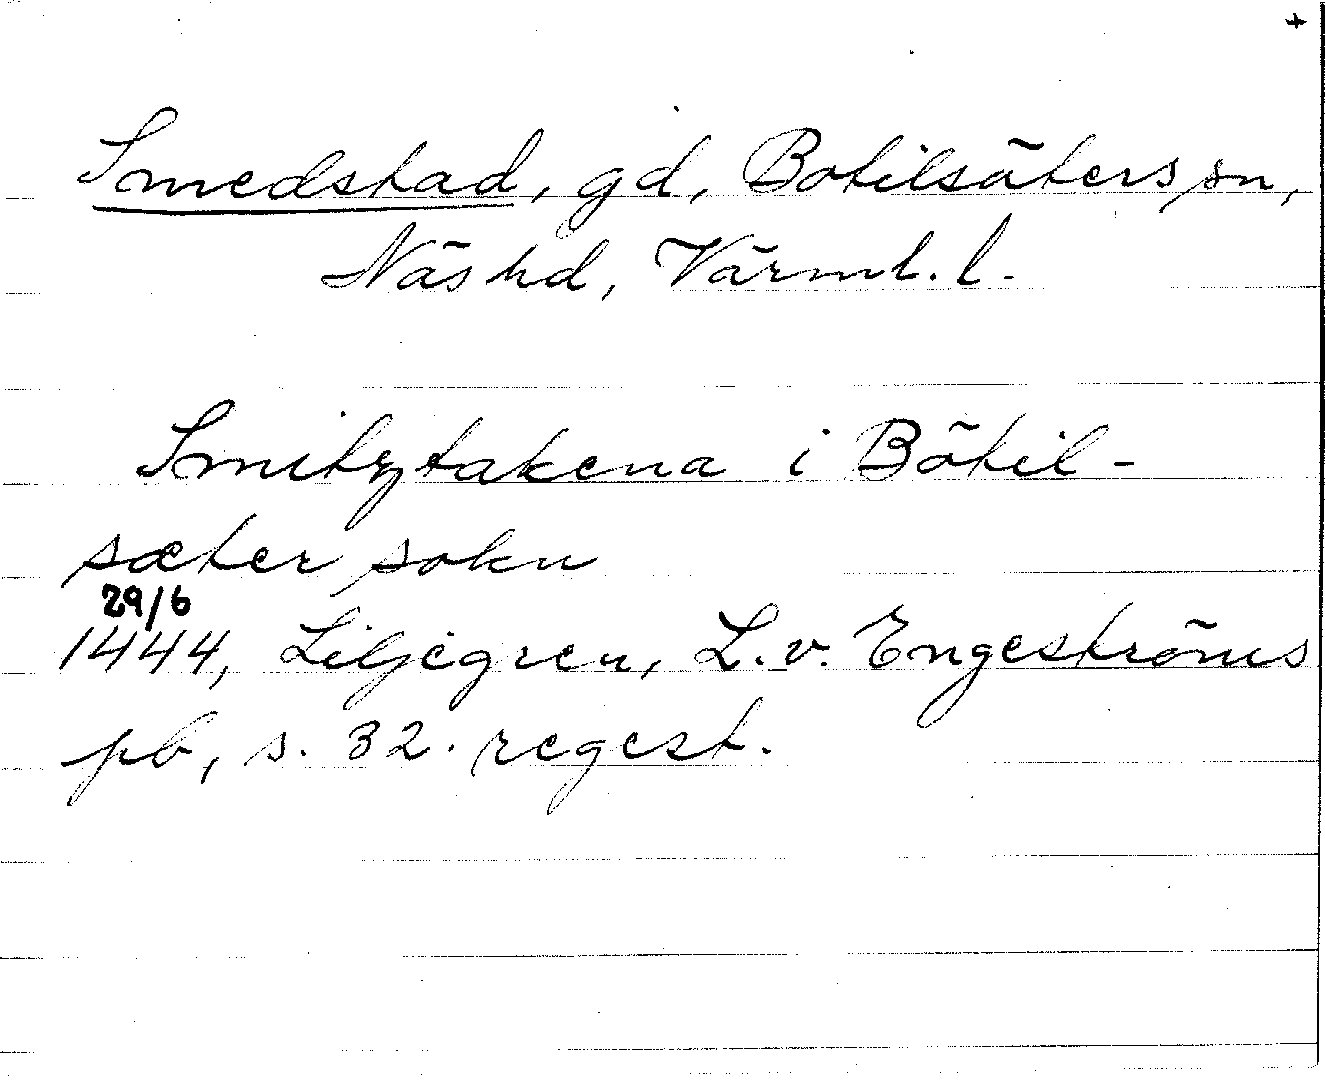 +
Smedstad, gd, Botilsäters sn,
Näs hd, Värml. l.
Smitzstakena i Bötil-
sæter sokn
29/6
1444, Liljegren, L. v. Engeströms
pb, s. 32. regest.